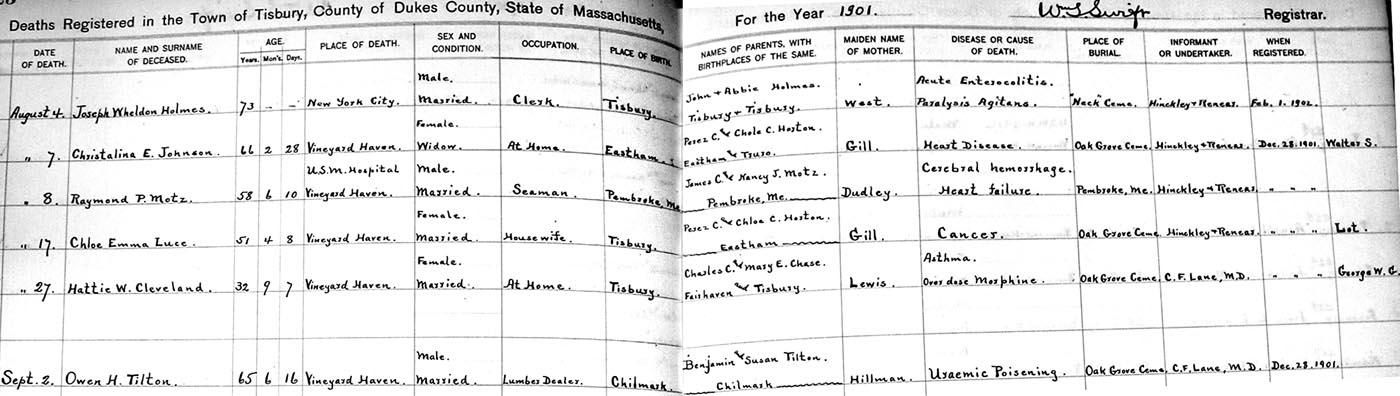 Deaths Registered in the Town of Tisbury, County of Dukes County, State of Massachusetts, For the Year 1901. W.S. Swift Registrar.
DATE OF DEATH. NAME AND SURNAME OF DECEASED. AGE. Years. Mon's. Days. PLACE OF DEATH. SEX AND CONDITION. OCCUPATION. PLACE OF BIRTH. NAMES OF PARENTS, WITH BIRTHPLACES OF THE SAME. MAIDEN NAME OF MOTHER. DISEASE OR CAUSE OF DEATH. PLACE OF BURIAL. INFORMANT OR UNDERTAKER. WHEN REGISTERED.
Male. John & Abbie Holmes. Acute Enterocolitis.
August 4. Joseph Wheldon Holmes. 73 - - New York City. Married. Clerk. Tisbury. Tisbury & Tisbury. West. Paralysis Agitans. "Neck" Ceme. Hinckley & Renear. Feb. 1. 1902.
Female. Perez C. & Chole C. Horton.
" 7. Christalina E. Johnson. 66 2 28 Vineyard Haven. Widow. At Home. Eastham. Eastham & Truro. Gill. Heart Disease. Oak Grove Ceme. Hinckley & Renear. Dec. 28. 1901. Walter S.
U.S.M. Hospital Male. James C. & Nancy J. Motz. Cerebral hemorrhage.
" 8. Raymond P. Motz. 58 6 10 Vineyard Haven. Married. Seaman. Pembroke, Me. Pembroke, Me. Dudley. Heart failure. Pembroke, Me. Hinckley & Renear. " " "
Female. Perez C. & Chloe C. Horton.
" 17. Chloe Emma Luce. 51 4 8 Vineyard Haven. Married. Housewife. Tisbury. Eastham Gill. Cancer. Oak Grove Ceme. Hinckley & Renear. " " " Lot.
Female. Charles C. & Mary E. Chase. Asthma.
" 27. Hattie W. Cleveland. 32 9 7 Vineyard Haven. Married. At Home. Tisbury. Fairhaven & Tisbury. Lewis. Over dose Morphine. Oak Grove Ceme. C.F. Lane, M.D. " " " George W. G.
Male. Benjamin & Susan Tilton.
Sept. 2. Owen H. Tilton. 65 6 16 Vineyard Haven. Married. Lumber Dealer. Chilmark. Chilmark Hillman. Uraemic Poisening. Oak Grove Ceme. C.F. Lane, M.D. Dec. 28. 1901.